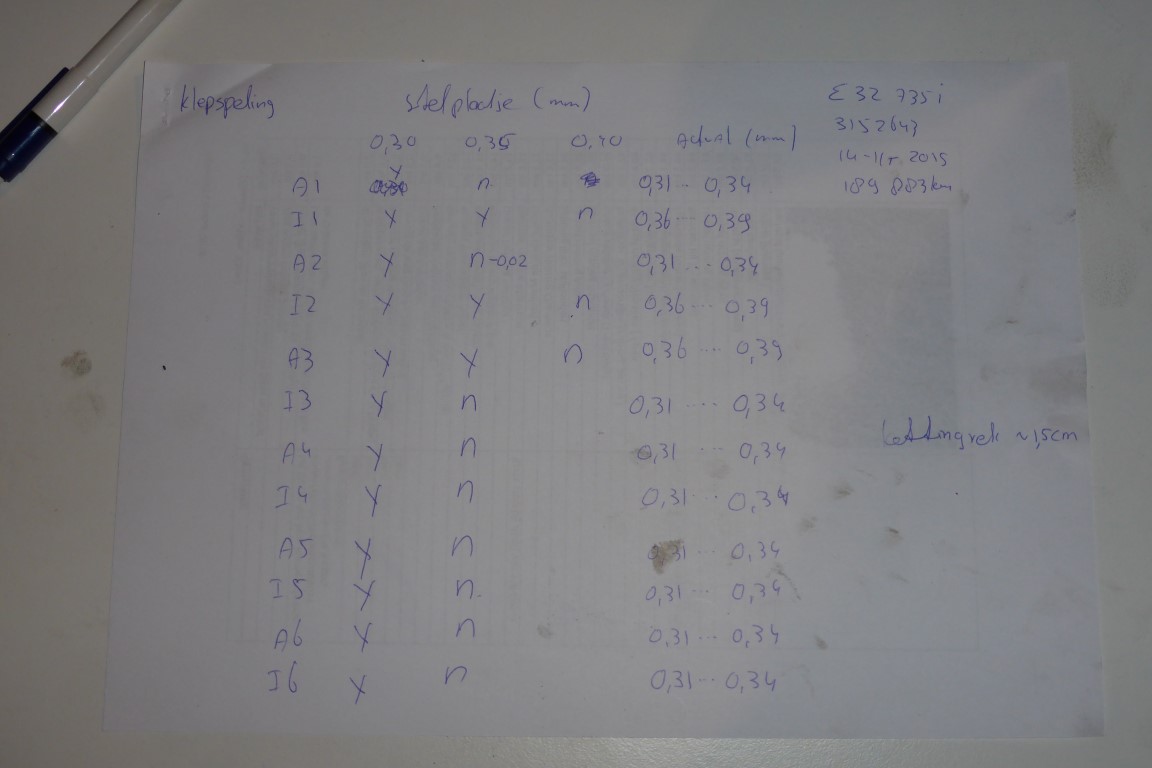 klepspeling stelplaatje (mm) E32 735i
3152643
0,30 0,35 0,40 Actual (mm)
14-11-2015
A1 y n 0,31 .. 0,34 189 883km
I1 y y n 0,36 ... 0,39
A2 y n-0,02 0,31 ... 0,34
I2 y y n 0,36 ... 0,39
A3 y y n 0,36 ... 0,39
I3 y n 0,31 ... 0,34
kettingrek ~1,5cm
A4 y n 0,31 ... 0,34
I4 y n 0,31 ... 0,34
A5 y n 0,31 ... 0,34
I5 y n 0,31 ... 0,34
A6 y n 0,31 ... 0,34
I6 y n 0,31 ... 0,34